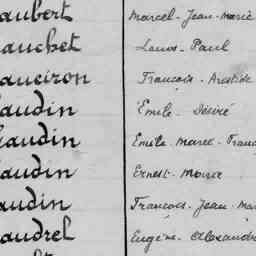 aubert Marcel - Jean - Marie
auchet Louis - Paul
aueiron François - Aristide
audin Emile - Désiré
audin Emile - Marcel - Franç
audin Ernest - Marie
audin François - Jean - Mar
audrel Eugène - Alexandre